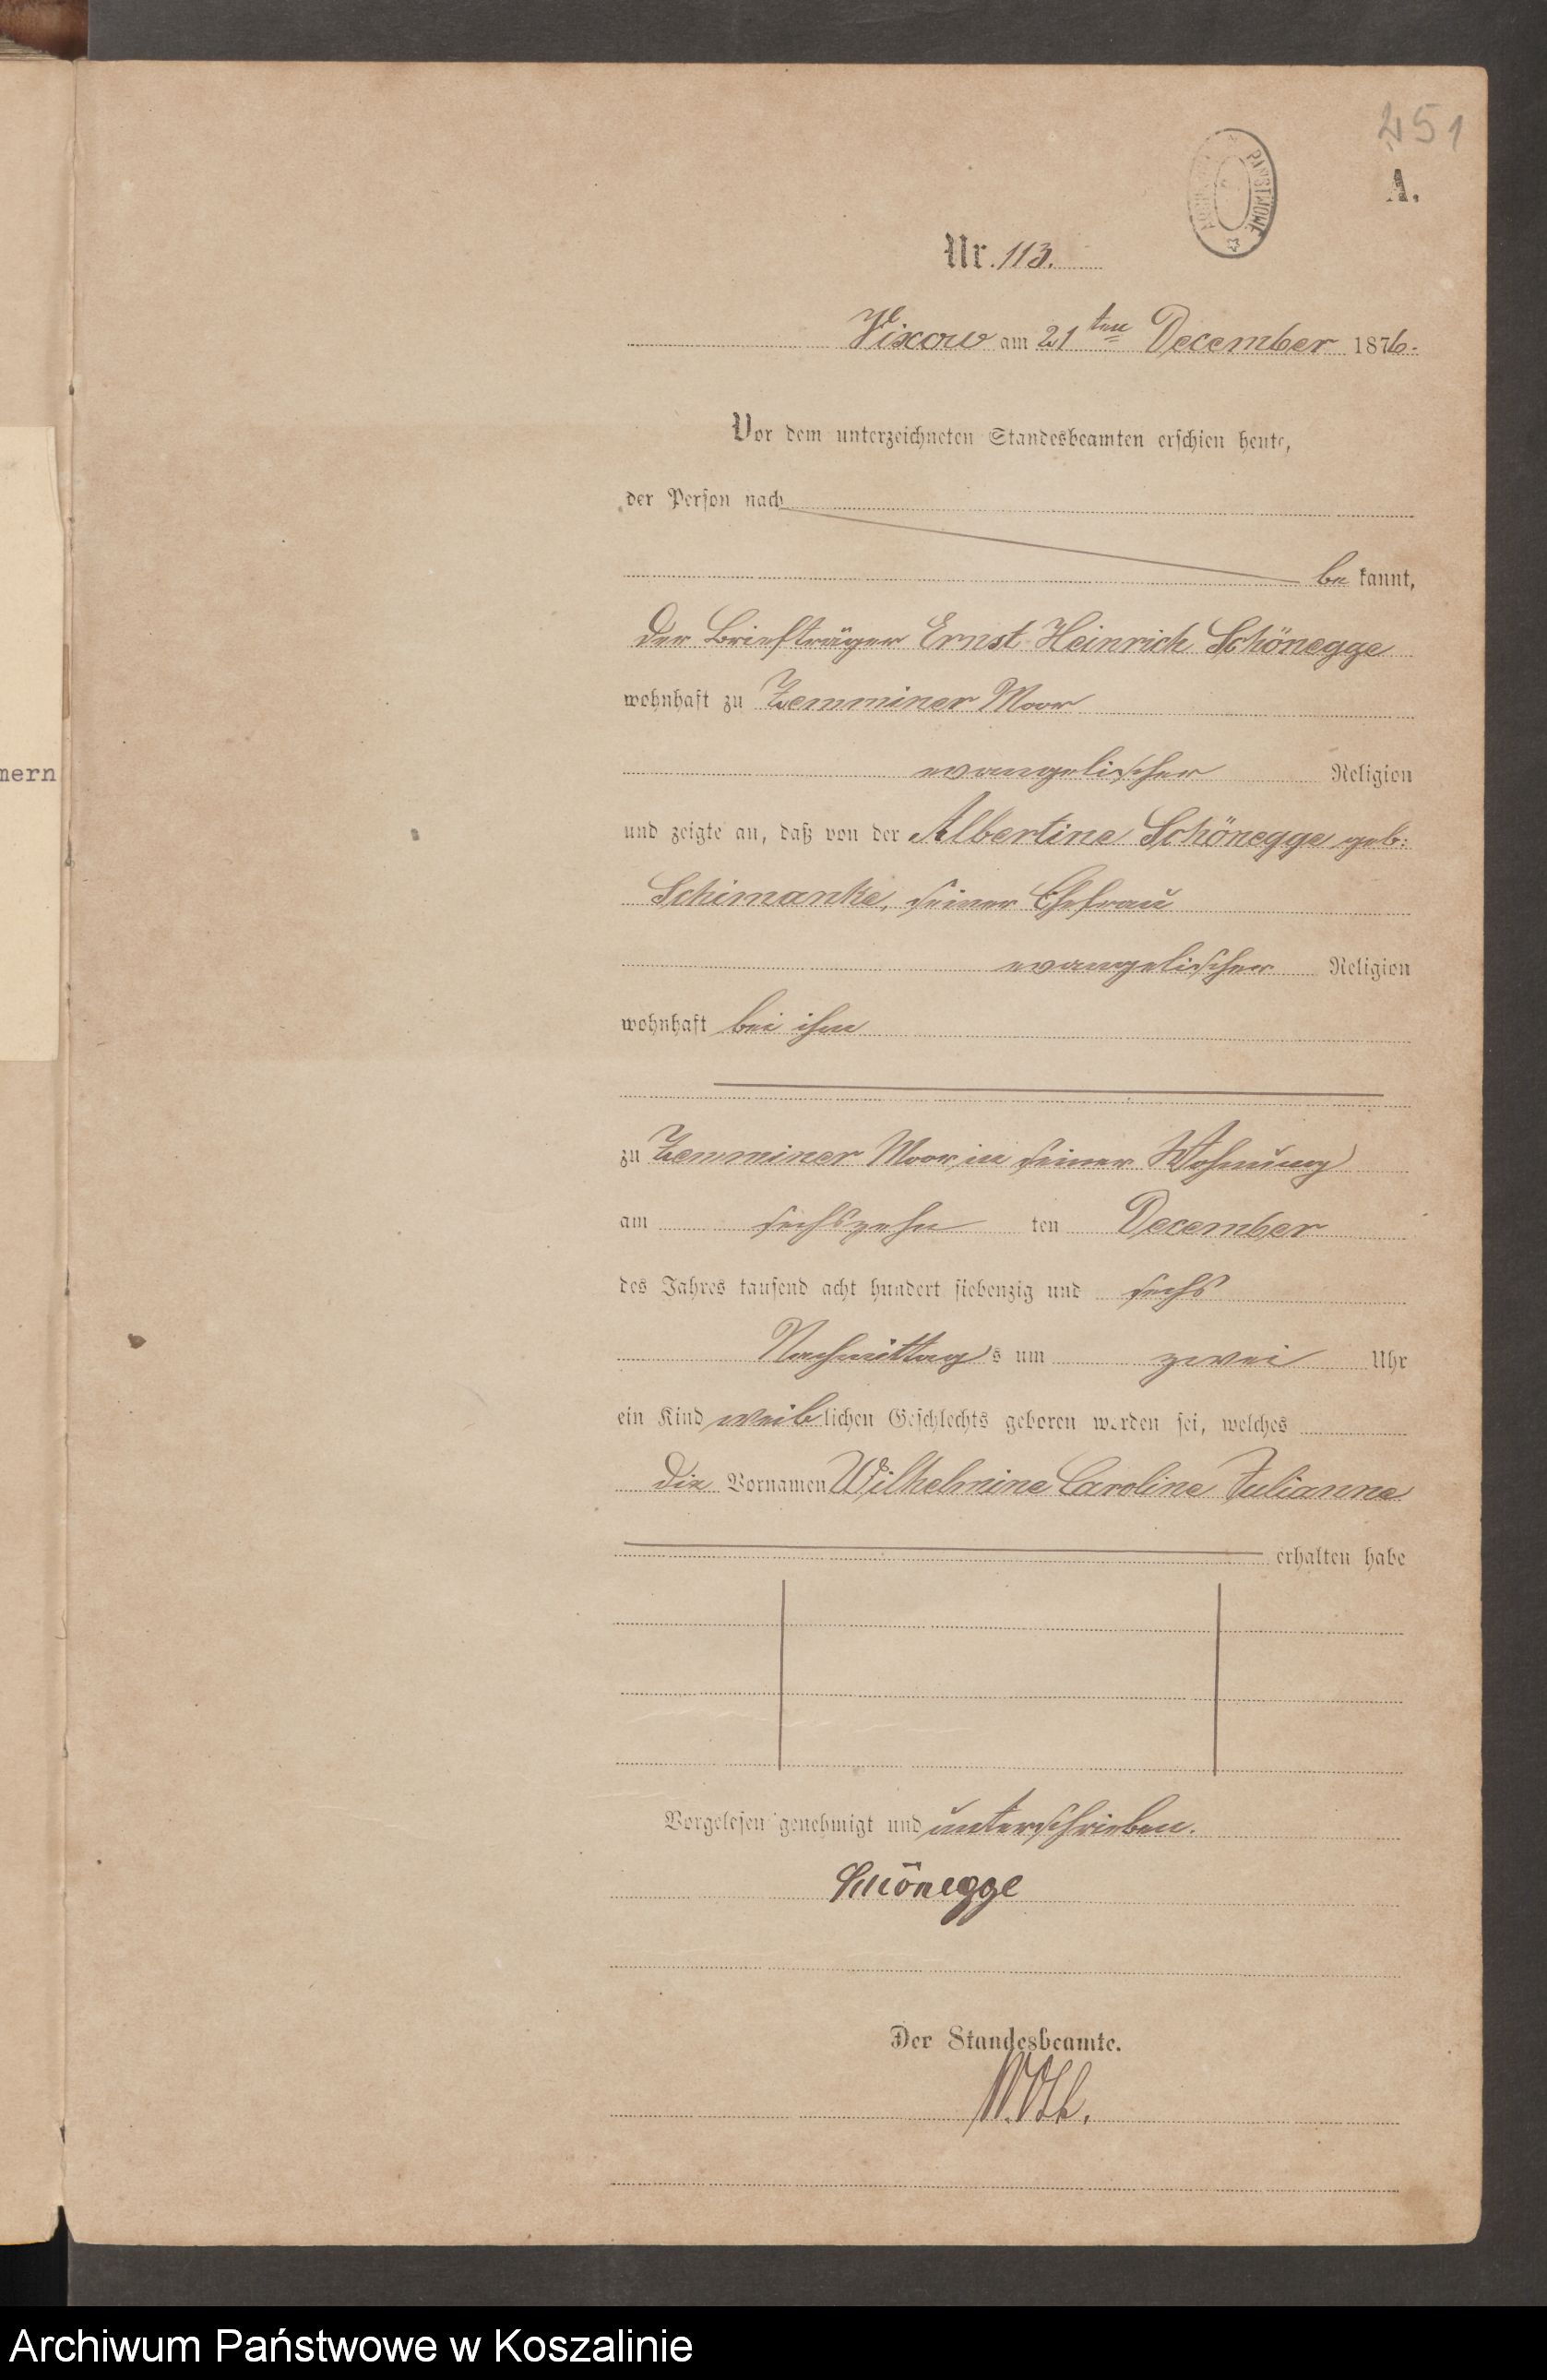 451
A.
Nr. 113.
Vixow am 21ten December 1876.
Vor dem unterzeichneten Standesbeamten erschien heute,
der Person nach
be kannt,
der Briefträger Ernst Heinrich Schönegge
wohnhaft zu Zemminer Moor
evangelischer Religion
und zeigte an, daß von der Albertine Schönegge geb:
Schimanke, seiner Ehefrau
evangelischer Religion
wohnhaft bei ihm
zu Zemminer Moor in seiner Wohnung
am sechszehn ten December
des Jahres tausend acht hundert siebenzig und sechs
Nachmittags um zwei Uhr
ein Kind weiblichen Geschlechts geboren worden sei, welches
die Vornamen Wilhelmine Caroline Julianne
erhalten habe
Vorgelesen genehmigt und unterschrieben.
Schönegge
Der Standesbeamte.
mern
Archiwum Państwowe w Koszalinie